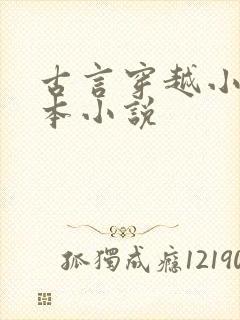 古言穿越小
本小説
孤獨成癮12190